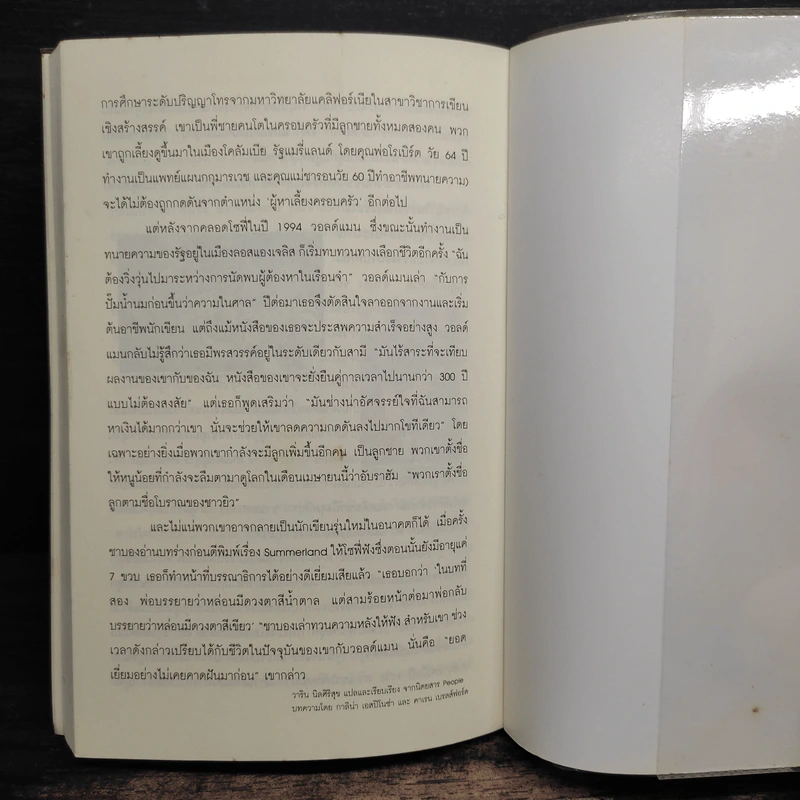 การศึกษาระดับปริญญาโทรจากมหาวิทยาลัยแคลิฟอร์เนียในสาขาวิชาการเขียน
เชิงสร้างสรรค์ เขาเป็นพี่ชายคนโตในครอบครัวที่มีลูกชายทั้งหมดสองคน พวก
เขาถูกเลี้ยงดูขึ้นมาในเมืองโคลัมเบีย รัฐแมรี่แลนด์ โดยคุณพ่อโรเบิร์ต วัย 64 ปี
ทำงานเป็นแพทย์แผนกกุมารเวช และคุณแม่ชารอนวัย 60 ปีทำอาชีพทนายความ)
จะได้ไม่ต้องถูกกดดันจากตำแหน่ง 'ผู้หาเลี้ยงครอบครัว' อีกต่อไป
แต่หลังจากคลอดโซฟีในปี 1994 วอลด์แมน ซึ่งขณะนั้นทำงานเป็น
ทนายความของรัฐอยู่ในเมืองลอสแองเจลิส ก็เริ่มทบทวนทางเลือกชีวิตอีกครั้ง "ฉัน
ต้องวิ่งวุ่นไปมาระหว่างการนัดพบผู้ต้องหาในเรือนจำ" วอลด์แมนเล่า "กับการ
ปั๊มน้ำนมก่อนขึ้นว่าความในศาล" ปีต่อมาเธอจึงตัดสินใจลาออกจากงานและเริ่ม
ต้นอาชีพนักเขียน แต่ถึงแม้หนังสือของเธอจะประสพความสำเร็จอย่างสูง วอลด์
แมนกลับไม่รู้สึกว่าเธอมีพรสวรรค์อยู่ในระดับเดียวกับสามี "มันไร้สาระที่จะเทียบ
ผลงานของเขากับของฉัน หนังสือของเขาจะยั่งยืนคู่กาลเวลาไปนานกว่า 300 ปี
แบบไม่ต้องสงสัย" แต่เธอก็พูดเสริมว่า "มันช่างน่าอัศจรรย์ใจที่ฉันสามารถ
หาเงินได้มากกว่าเขา นั่นจะช่วยให้เขาลดความกดดันลงไปมากโขทีเดียว" โดย
เฉพาะอย่างยิ่งเมื่อพวกเขากำลังจะมีลูกเพิ่มขึ้นอีกคน เป็นลูกชาย พวกเขาตั้งชื่อ
ให้หนูน้อยที่กำลังจะลืมตามาดูโลกในเดือนเมษายนนี้ว่าอับราฮัม "พวกเราตั้งชื่อ
ลูกตามชื่อโบราณของชาวยิว"
และไม่แน่พวกเขาอาจกลายเป็นนักเขียนรุ่นใหม่ในอนาคตก็ได้ เมื่อครั้ง
ชาบองอ่านบทร่างก่อนตีพิมพ์เรื่อง Summerland ให้โซฟีฟังซึ่งตอนนั้นยังมีอายุแค่
7 ขวบ เธอก็ทำหน้าที่บรรณาธิการได้อย่างดีเยี่ยมเสียแล้ว "เธอบอกว่า 'ในบทที่
สอง พ่อบรรยายว่าหล่อนมีดวงตาสีน้ำตาล แต่สามร้อยหน้าต่อมาพ่อกลับ
บรรยายว่าหล่อนมีดวงตาสีเขียว' "ชาบองเล่าทวนความหลังให้ฟัง สำหรับเขา ช่วง
เวลาดังกล่าวเปรียบได้กับชีวิตในปัจจุบันของเขากับวอลด์แมน นั่นคือ "ยอด
เยี่ยมอย่างไม่เคยคาดฝันมาก่อน" เขากล่าว
วาริน นิลศิริสุข แปลและเรียบเรียง จากนิตยสาร People
บทความโดย กาลิน่า เอสปิโนซ่า และ คาเรน เบรลส์ฟอร์ด